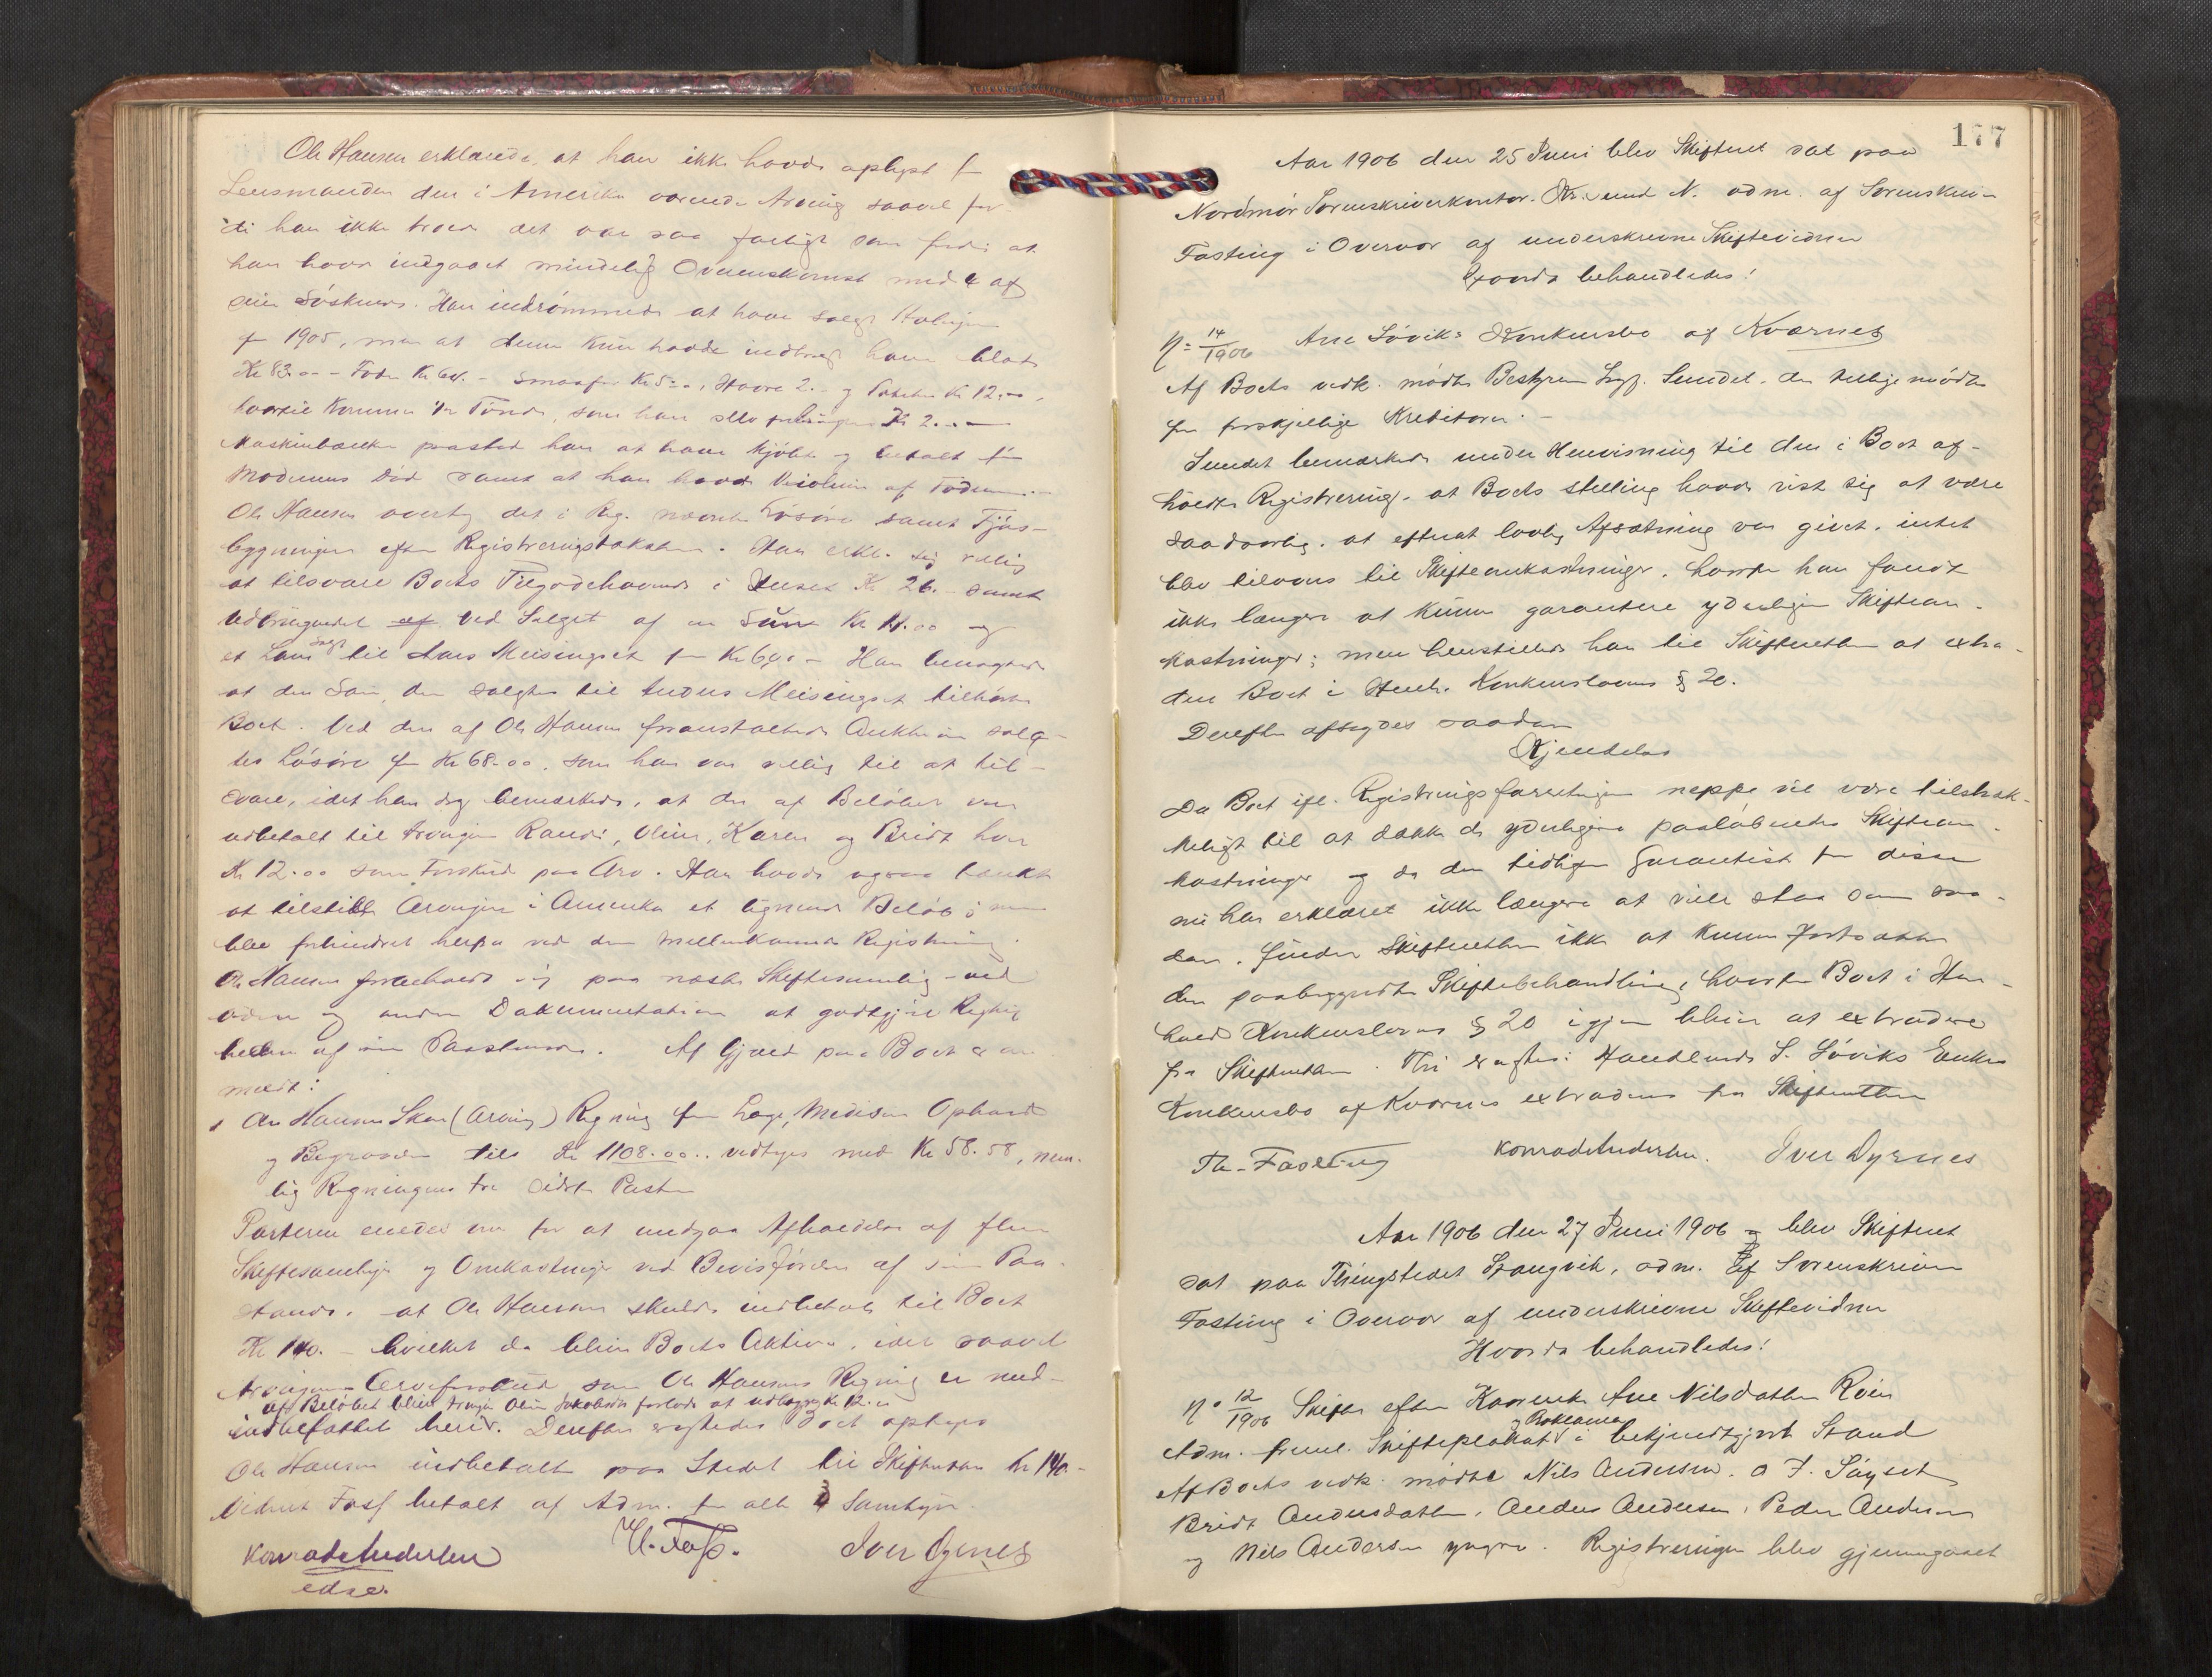 Ole Hansen erklærede, at han ikke havde oplyst for
Lensmanden den i Amerika værende Arving saavel for-
di han ikke troede det var saa farligt som fordi at
han havde indgaaet mindelig Overenskomst med 4 af
sine Søskende. Han indrømmede at have solgt Avlingen
for 1905, men at denne kun havde indbragt ham blot
Kr 83.00 - Foder Kr 64. - Smaafor Kr 5.00, Havre 2. - og Poteter Kr 12.00,
hvortil kommer 1/2 Tønde, som han selv Kr 2.00
Maskinbænken paastod han at have kjøbt og betalt før
Moderens Død samt at han havde Violinen af Foderen. -
Ole Hansen overtog det i Reg. nævnte Løsøre samt Fjøs-
bygningen efter Registreringstaksten. Han erkl. sig villig
at tilsvare Boets Tilgodehavende i Huset Kr. 26. - samt
Udbringendet af ved Salget af en Sau Kr 11.00 og
et Lam solgt til Lars Meisingset for Kr 6,00 - Han benægtede
at den Sau, der solgtes til Anders Meisingset tilhørte
Boet. Ved den af Ole Hansen foranstaltede Auktion solg-
tes Løsøre for Kr 68.00, som han var villig til at til-
svare, idet han dog bemærkede, at der af Beløbet var
udbetalt til Arvingerne Randi, Oline, Karen og Bridt hver
Kr 12.00 som Forskud paa Arv. Han havde ogsaa tænkt
at tilstille Arvingen i Amerika et lignende Beløb; men
blev forhindret herfra ved den mellemkomne Registrering.
Ole Hansen forbeholdt sig paa næste Skiftesamling - ved
Vidner og anden Dokumentation at godtgjøre Rigtig-
heden af sine Paastande. Af Gjæld paa Boet er an-
meldt:
1 Ole Hansen Skar (Arving) Regning for Læge, Medisin Ophold
og Begravelse tils Kr 1108.00.. vedtages med Kr 58.58, nem-
lig Regningens tre sidste Poster
Parterne enedes om for at undgaa Afholdelse af flere
Skiftesamlinger og Omkostninger ved Bevisførelse af sine Paa-
stande, at Ole Hansen skulde indbetale til Boet
Kr 140. - hvilket da bliver Boets Aktiva, idet saavel
Arvingernes Arveforskud som Ole Hansens Regning er ind-
af Beløbet bliver Arvingen Oline Jakobsdr forlods at udlægge Kr 12.00
indbefattet heri. Derefter sagtedes Boet optaget
Ole Hansen indbetalte paa Stedet til Skifteretten Kr 140 -
Vidnet Fasf betalt af Adm. for alle 3 Samlinger.
Konrad Andersen Th. Fasf. Iver Dyrnes
edsv.
177
Aar 1906 den 25 Juni blev Skifteret sat paa
Nordmør Sorenskriverkontor. Kr.sund N. adm. af Sorenskriver
Fasting i Overvær af underskrevne Skiftevidner
Hvorda behandledes:
No 14/1906 Ane Løviks Konkursbo af Kværnes
Af Boets vedk. mødte Bestyreren Sagf. Sundet, der tillige mødte
for forskjellige Kreditorer. -
Sundet bemærkede under Henvisning til den i Boet af-
holdte Registrering, at Boets stilling havde vist sig at være
saa daarlig, at efterat lovlig Afsætning var givet, intet
blev tilovers til Skifteomkostninger, hvorfor han fandt
ikke længere at kunne garantere yderligere Skifteom-
kostninger; men henstillede han til Skifteretten at extra-
dere Boet i Henh. Konkurslovens § 20.
Derefter afsagdes saadan
Kjendelse
Da Boet ifl. Registreringsforretningen neppe vil være tilstræk-
keligt til at dække de yderligere paaløbende Skifteom-
kostninger og da den tidligere Garantist for disse
nu har erklæret ikke længere at ville staa som saa-
dan, finder Skifteretten ikke at kunne fortsætte
den paabegyndte Skiftebehandling, hvorfor Boet i Hen-
hold Konkurslovens § 20 igjen bliver at extradere
fra Skifteretten. Thi eragtes: Handlende S. Løviks Enkes
Konkursbo af Kværnes extraderes fra Skifteretten
Th. Fasting Konrad Andersen. Iver Dyrnes
Aar 1906 den 27 Juni 1906 blev Skifteret
sat paa Thingstedet Stangvik, adm. af Sorenskriver
Fasting i Overvær af underskrevne Skiftevidner
Hvorda behandledes:
No 12/1906 Skifte efter Kaarenke Ane Nilsdatter Roen
Adm. freml. Skifteplakat og Proklama i bekjendtgjort Stand
Af Boets vedk. mødte Nils Andersen. O J. Søyset
Bridt Andersdatter, Anders Andersen, Peder Andersen
og Nils Andersen yngre. Registreringen blev gjennemgaaet